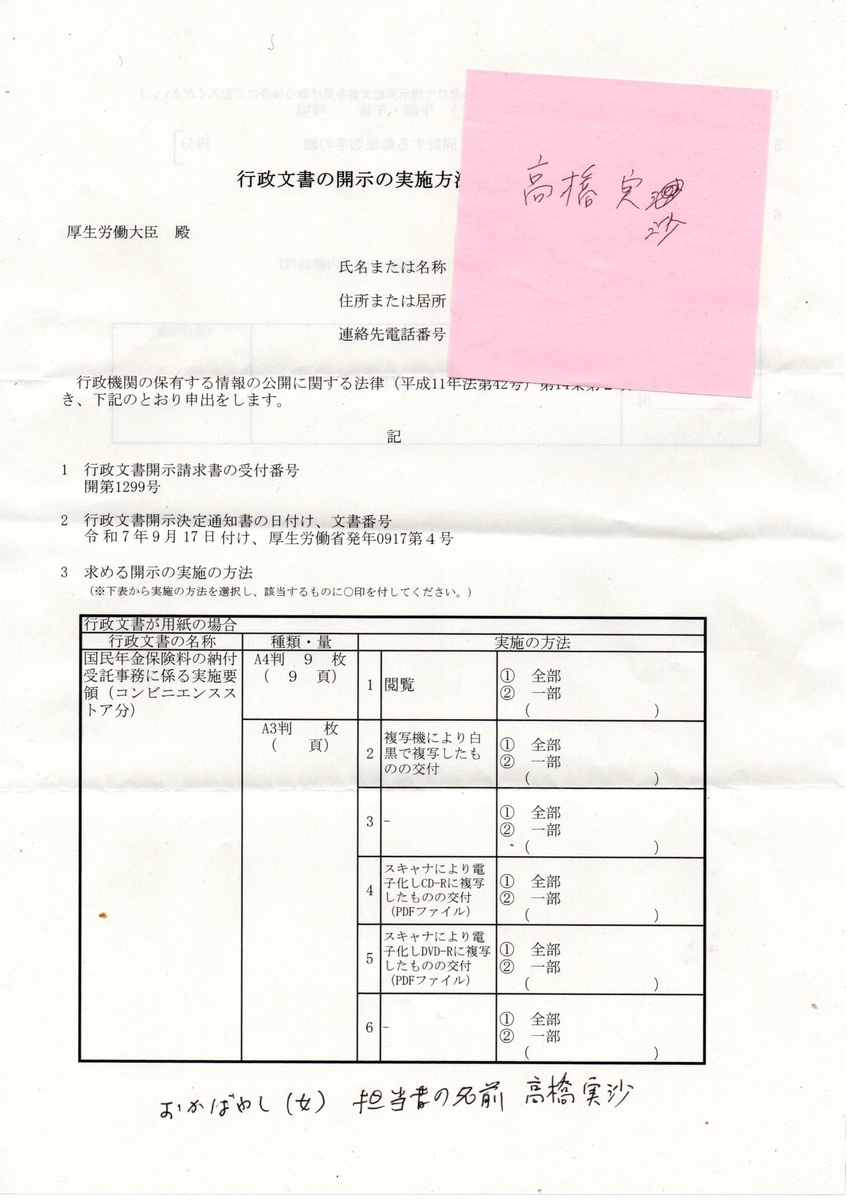 高橋実
沙
行政文書の開示の実施方法
厚生労働大臣　殿
氏名または名称
住所または居所
連絡先電話番号
行政機関の保有する情報の公開に関する法律（平成11年法第42号）第14条第2
き、下記のとおり申出をします。
記
1　行政文書開示請求書の受付番号
開第1299号
2　行政文書開示決定通知書の日付け、文書番号
令和7年9月17日付け、厚生労働省発年0917第4号
3　求める開示の実施の方法
（※下表から実施の方法を選択し、該当するものに○印を付してください。）
行政文書が用紙の場合
行政文書の名称　種類・量　実施の方法
国民年金保険料の納付
受託事務に係る実施要
領（コンビニエンスス
トア分）
A4判　9　枚
（　9　頁）
A3判　　枚
（　　頁）
1　閲覧
①　全部
②　一部
（　　　　　　　）
2　複写機により白
黒で複写したも
のの交付
①　全部
②　一部
（　　　　　　　）
3　-
①　全部
②　一部
（　　　　　　　）
4　スキャナにより電
子化しCD-Rに複写
したものの交付
（PDFファイル）
①　全部
②　一部
（　　　　　　　）
5　スキャナにより電
子化しDVD-Rに複写
したものの交付
（PDFファイル）
①　全部
②　一部
（　　　　　　　）
6　-
①　全部
②　一部
（　　　　　　　）
おかばやし（女）　担当者の名前　高橋実沙